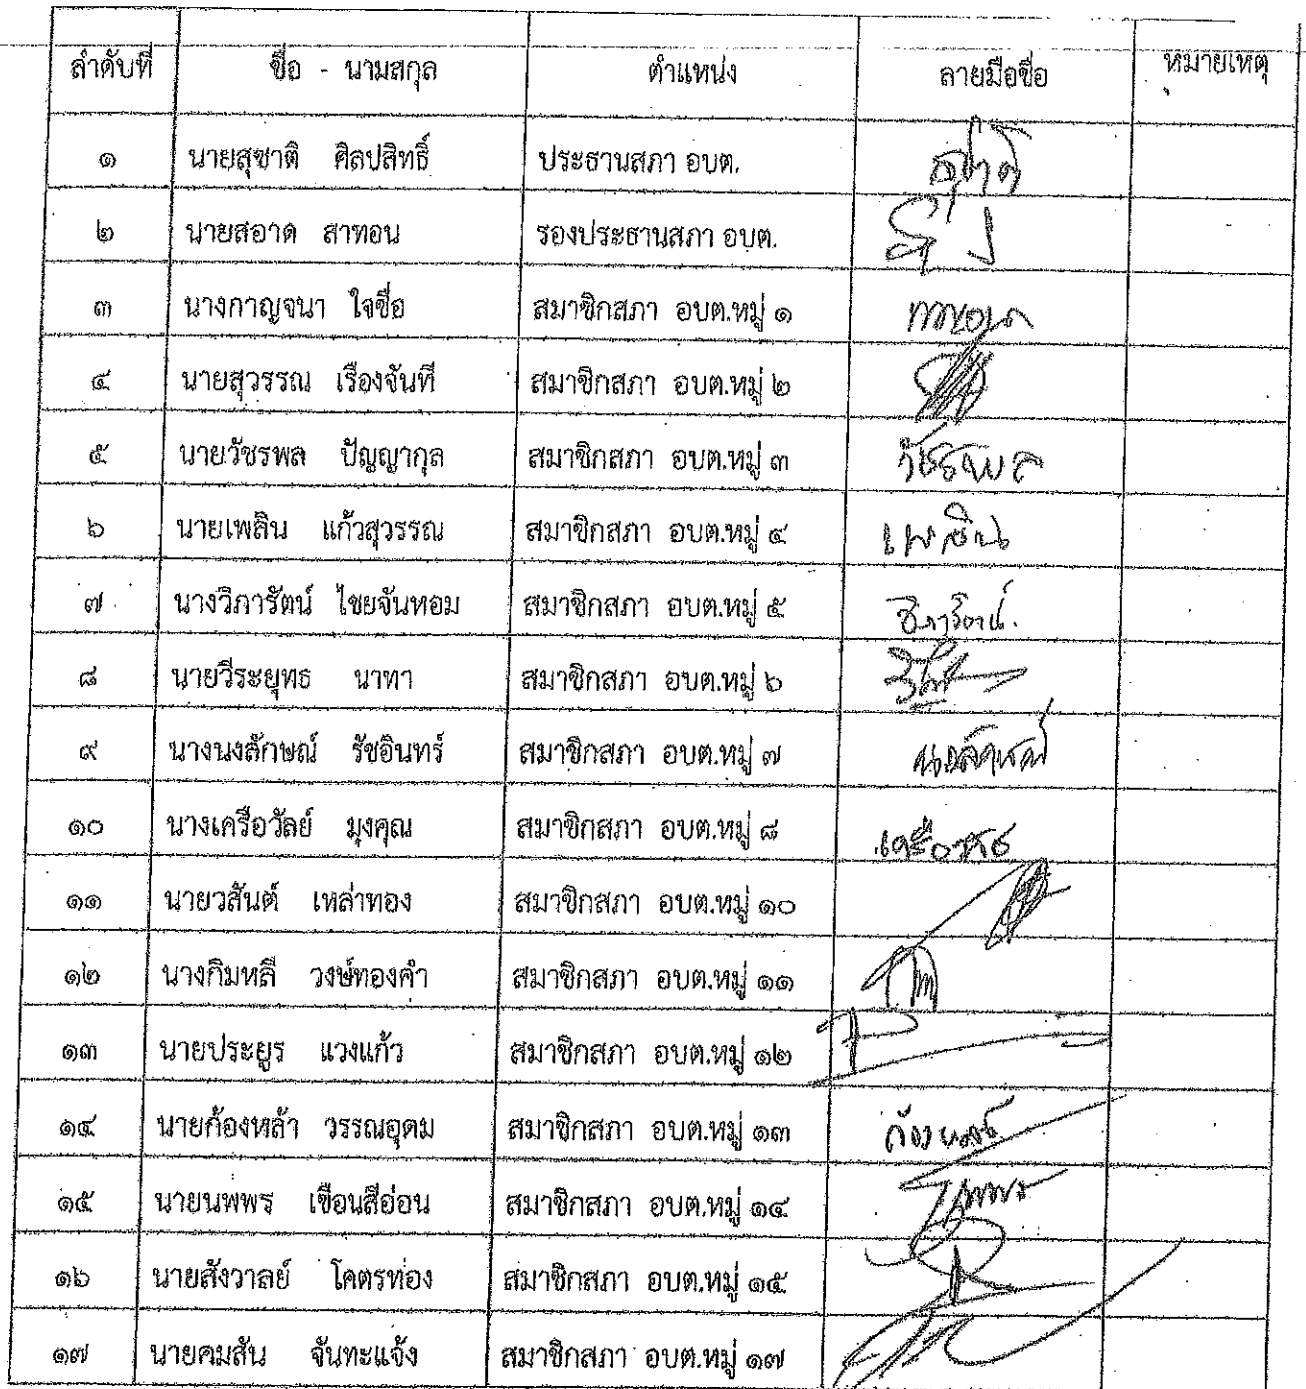 ลำดับที่ ชื่อ - นามสกุล ตำแหน่ง ลายมือชื่อ หมายเหตุ
๑ นายสุชาติ ศิลปสิทธิ์ ประธานสภา อบต. สุชาติ
๒ นายสอาด สาทอน รองประธานสภา อบต.
๓ นางกาญจนา ใจซื่อ สมาชิกสภา อบต.หมู่ ๑
๔ นายสุวรรณ เรืองจันที สมาชิกสภา อบต.หมู่ ๒
๕ นายวัชรพล ปัญญากุล สมาชิกสภา อบต.หมู่ ๓ วัชรพล
๖ นายเพลิน แก้วสุวรรณ สมาชิกสภา อบต.หมู่ ๔ เพลิน
๗ นางวิภารัตน์ ไชยจันหอม สมาชิกสภา อบต.หมู่ ๕ วิภารัตน์
๘ นายวีระยุทธ นาทา สมาชิกสภา อบต.หมู่ ๖
๙ นางนงลักษณ์ รัชอินทร์ สมาชิกสภา อบต.หมู่ ๗ นงลักษณ์
๑๐ นางเครือวัลย์ มุงคุณ สมาชิกสภา อบต.หมู่ ๘ เครือวัลย์
๑๑ นายวสันต์ เหล่าทอง สมาชิกสภา อบต.หมู่ ๑๐
๑๒ นางกิมหลี วงษ์ทองคำ สมาชิกสภา อบต.หมู่ ๑๑
๑๓ นายประยูร แวงแก้ว สมาชิกสภา อบต.หมู่ ๑๒
๑๔ นายก้องหล้า วรรณอุดม สมาชิกสภา อบต.หมู่ ๑๓ ก้องหล้า
๑๕ นายนพพร เขือนสีอ่อน สมาชิกสภา อบต.หมู่ ๑๔ นพพร
๑๖ นายสังวาลย์ โคตรท่อง สมาชิกสภา อบต.หมู่ ๑๕
๑๗ นายคมสัน จันทะแจ้ง สมาชิกสภา อบต.หมู่ ๑๗